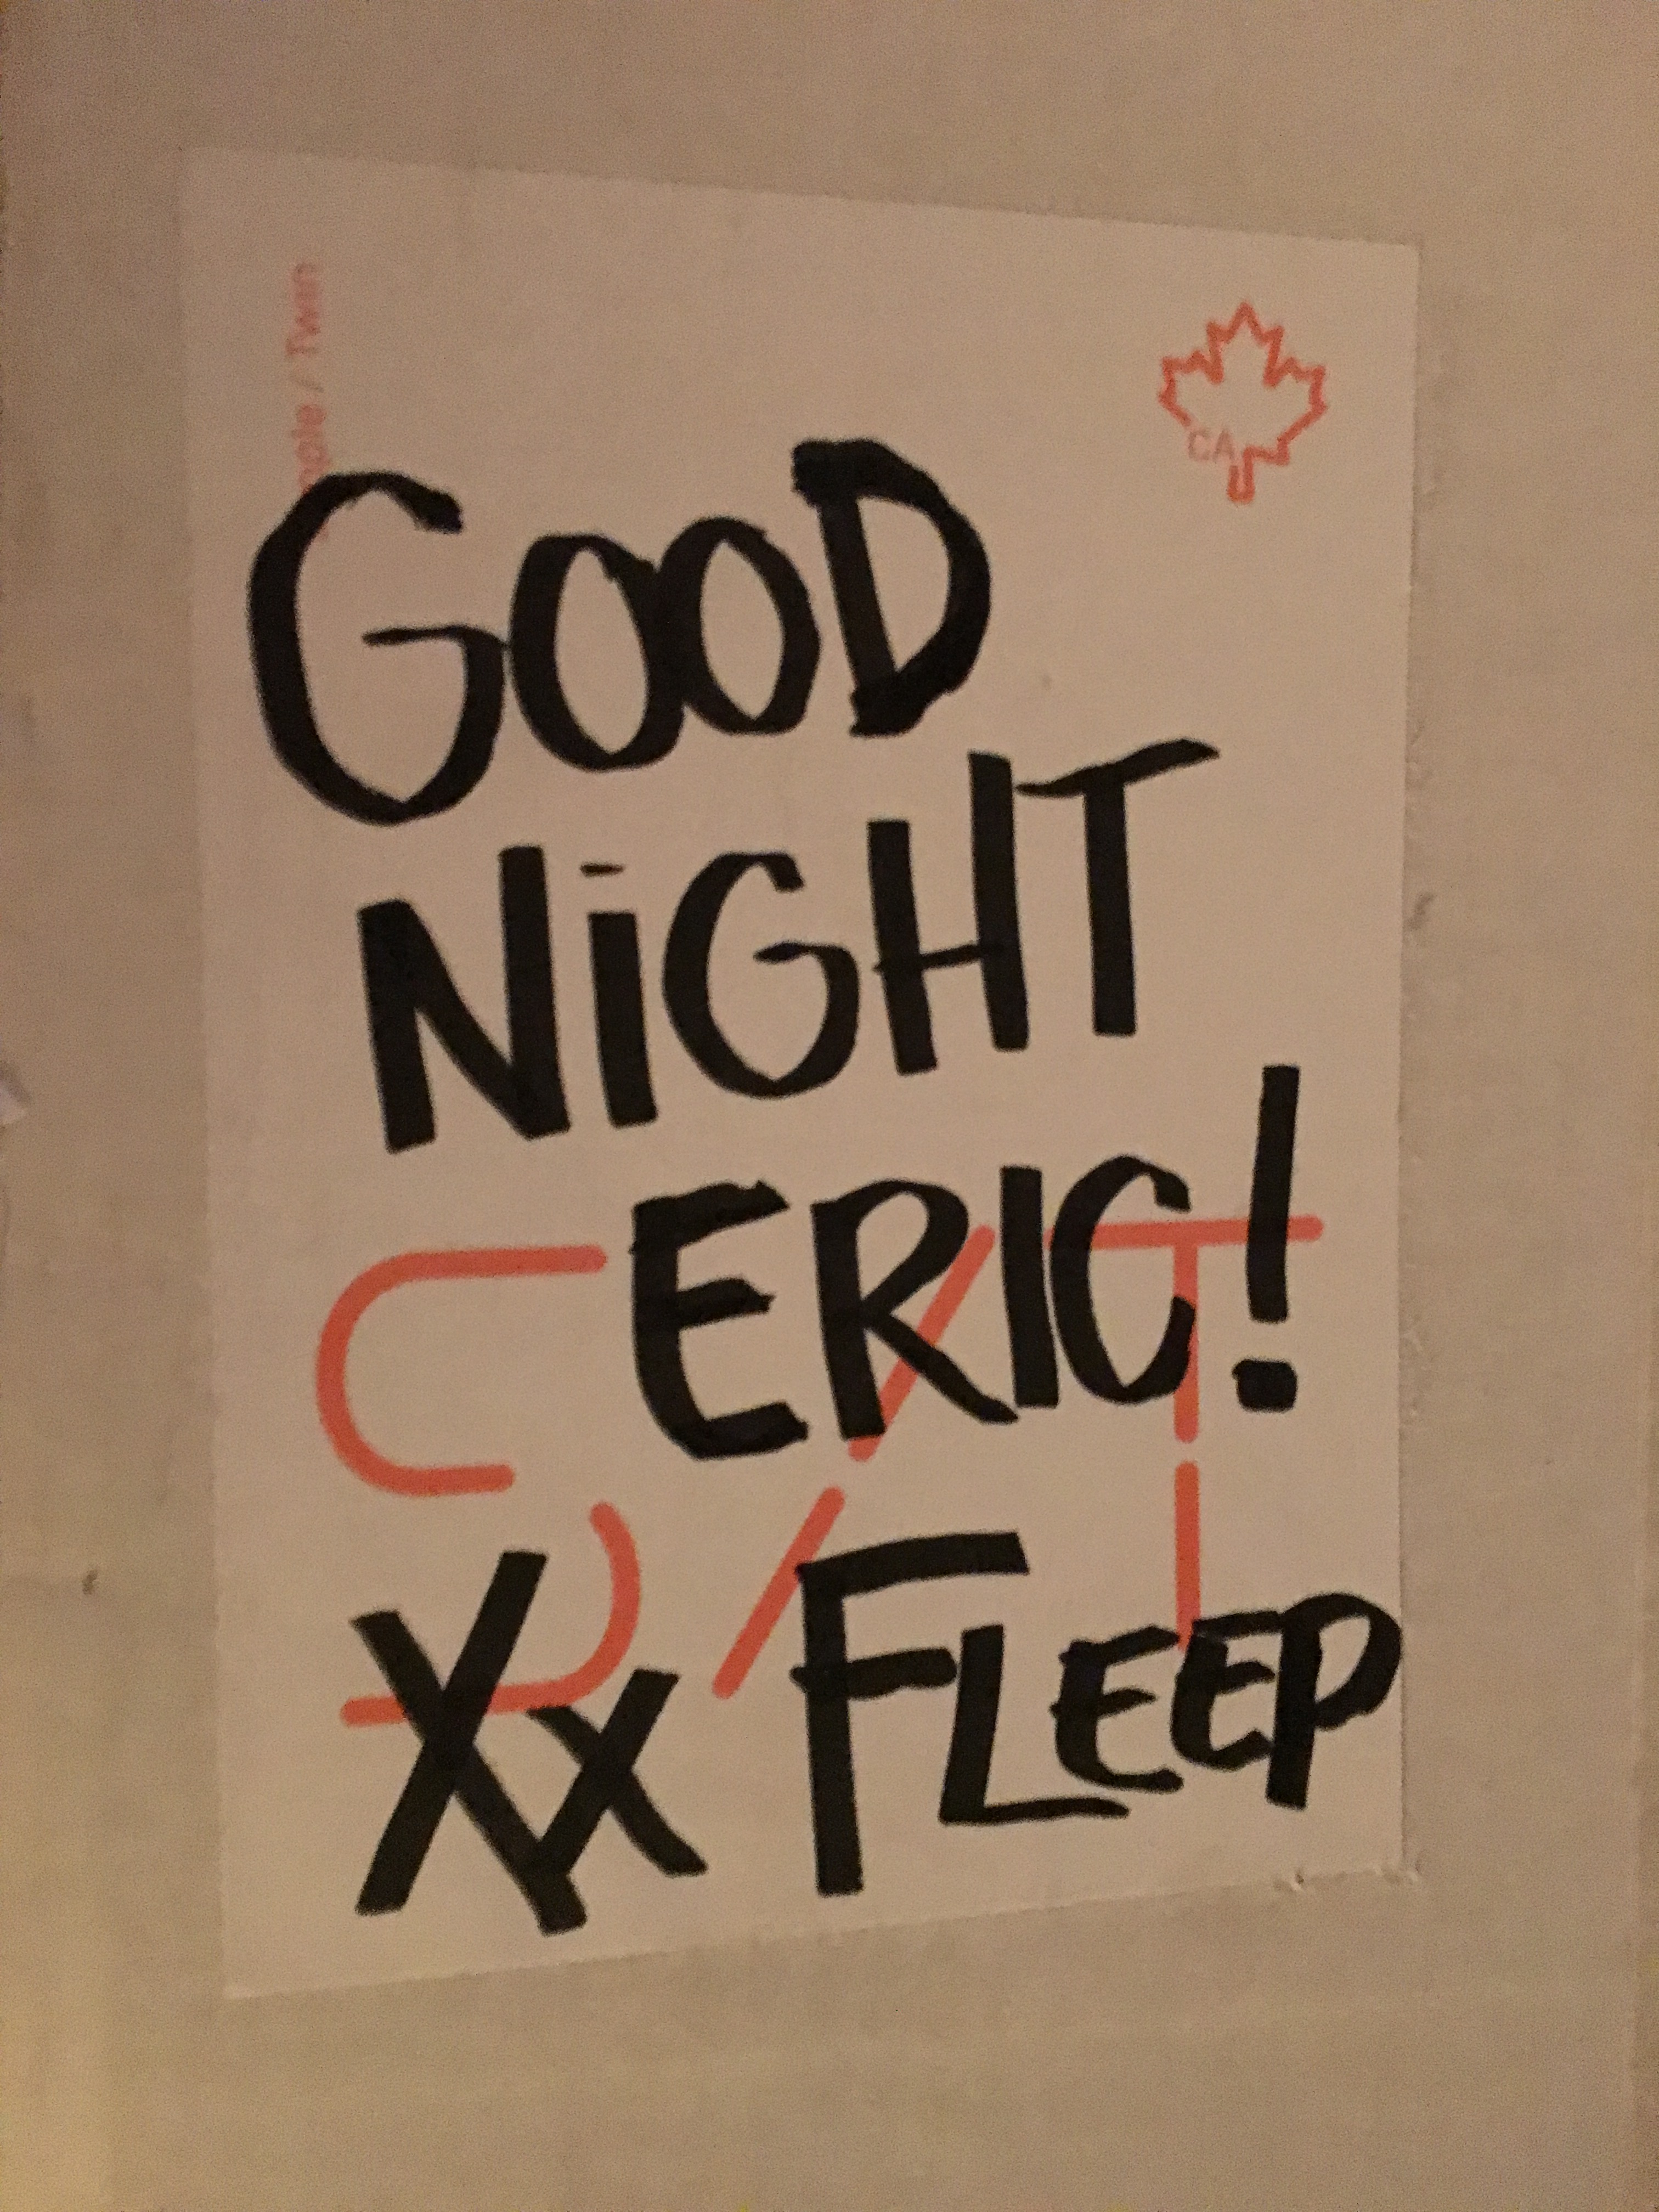 / Twin
CA
GOOD
NiGHT
ERIC!
Xx FLEEP